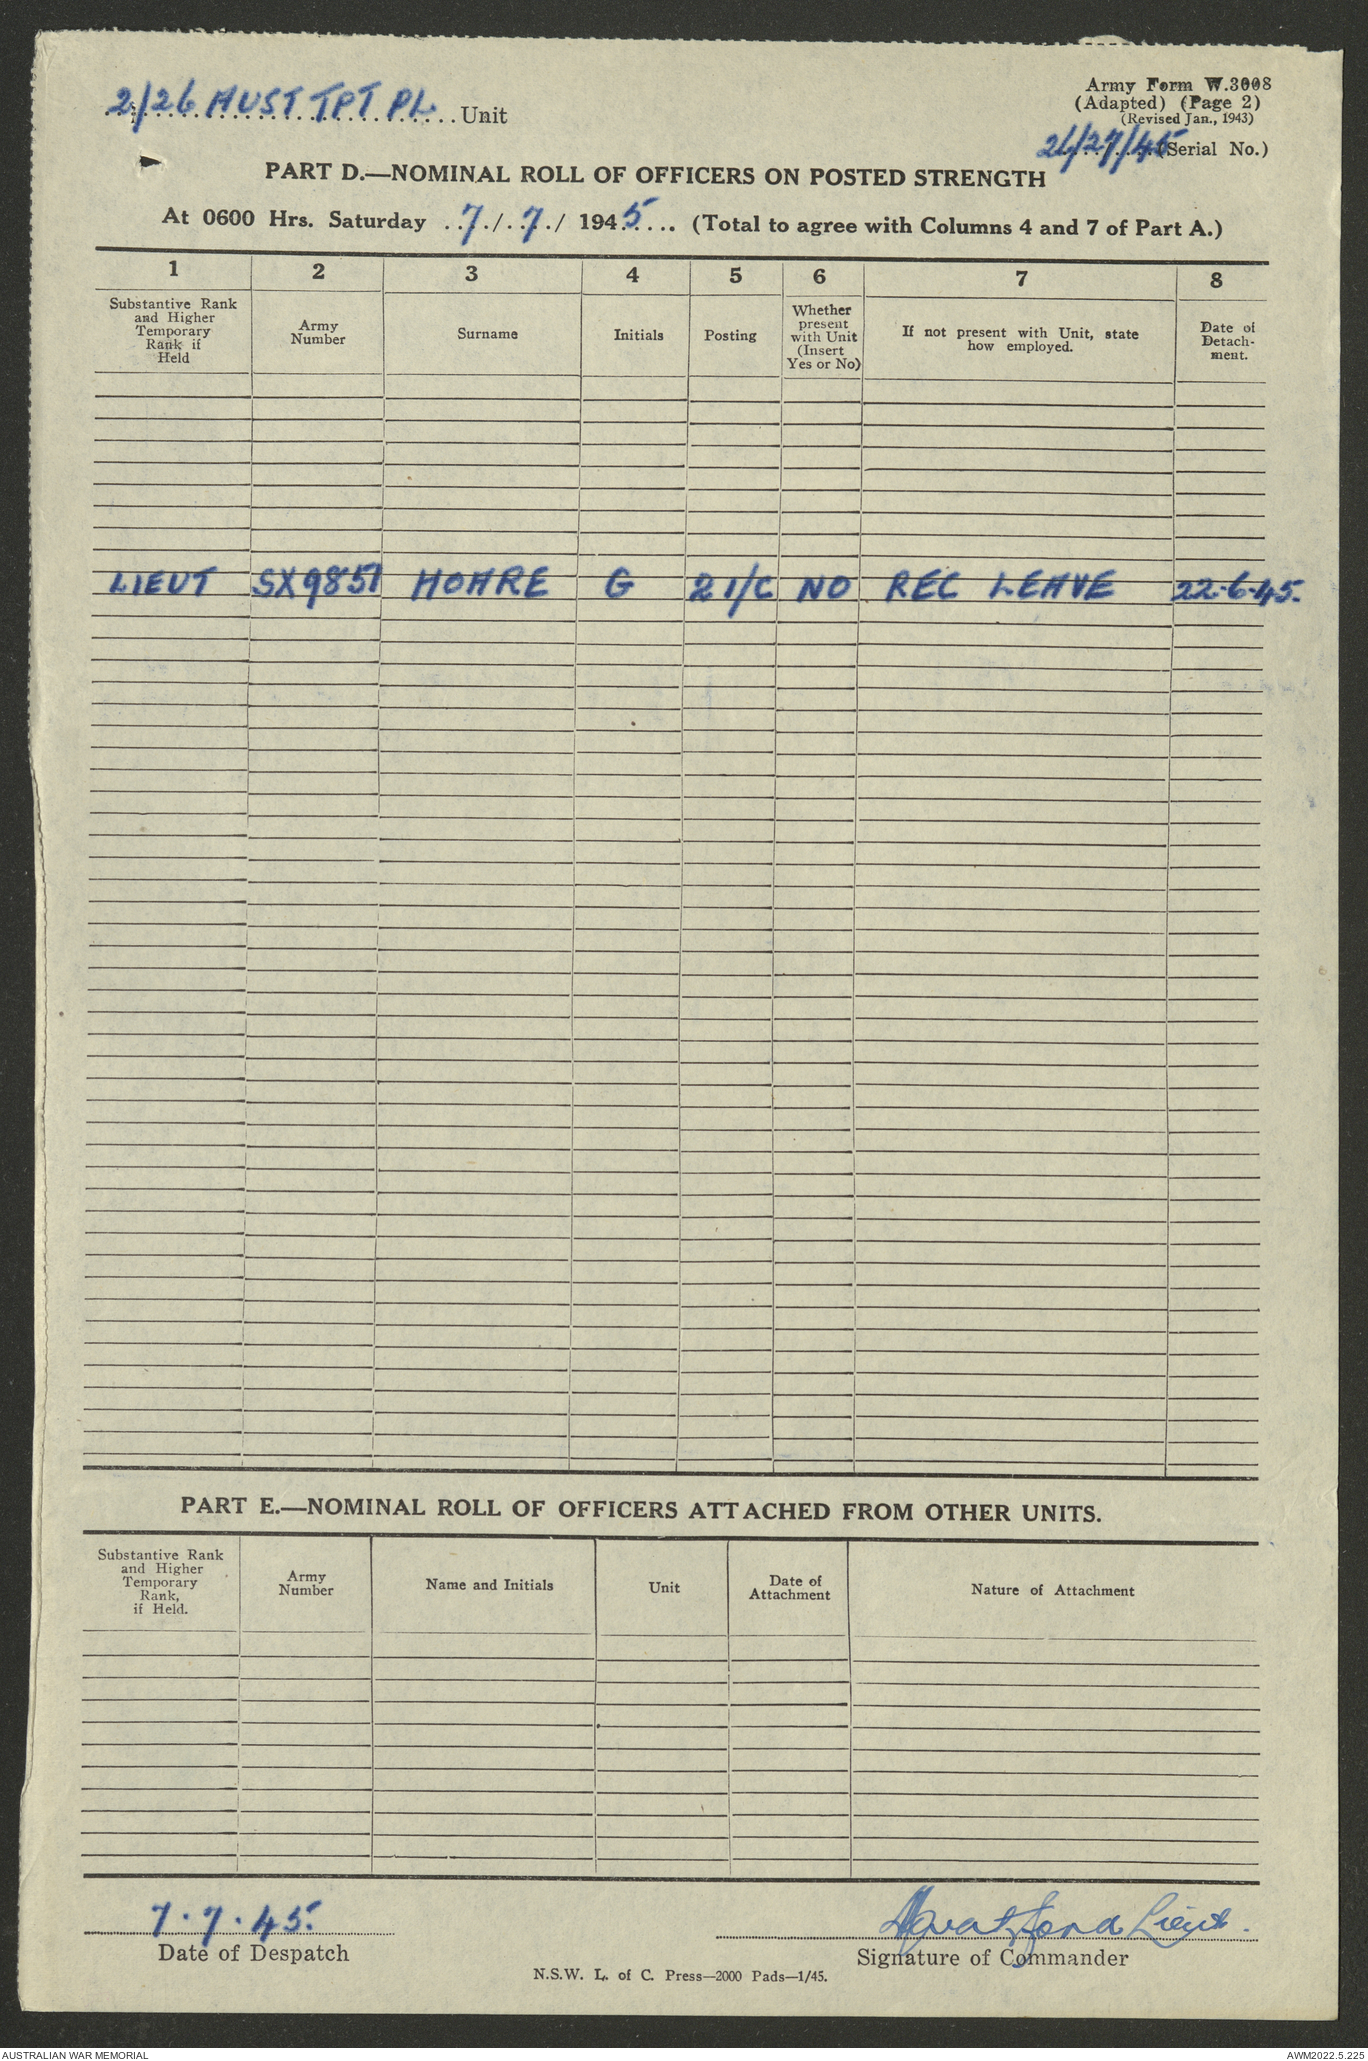 2/26 AUST TPT PL Unit
Army Form W.3008
(Adapted) (Page 2)
(Revised Jan., 1943)
26/27/45 (Serial No.)
PART D.—NOMINAL ROLL OF OFFICERS ON POSTED STRENGTH
At 0600 Hrs. Saturday 7/7/1945 (Total to agree with Columns 4 and 7 of Part A.)
1 2 3 4 5 6 7 8
Substantive Rank
and Higher
Temporary
Rank if
Held
Army
Number
Surname
Initials
Posting
Whether
present
with Unit
(Insert
Yes or No)
If not present with Unit, state
how employed.
Date of
Detach-
ment.
LIEUT SX9851 HOARE G 2 I/C NO REC LEAVE 22.6.45.
PART E.—NOMINAL ROLL OF OFFICERS ATTACHED FROM OTHER UNITS.
Substantive Rank
and Higher
Temporary
Rank,
if Held.
Army
Number
Name and Initials
Unit
Date of
Attachment
Nature of Attachment
7.7.45.
Date of Despatch
Lieut.
Signature of Commander
N.S.W. L. of C. Press—2000 Pads—1/45.
AUSTRALIAN WAR MEMORIAL
AWM2022.5.225